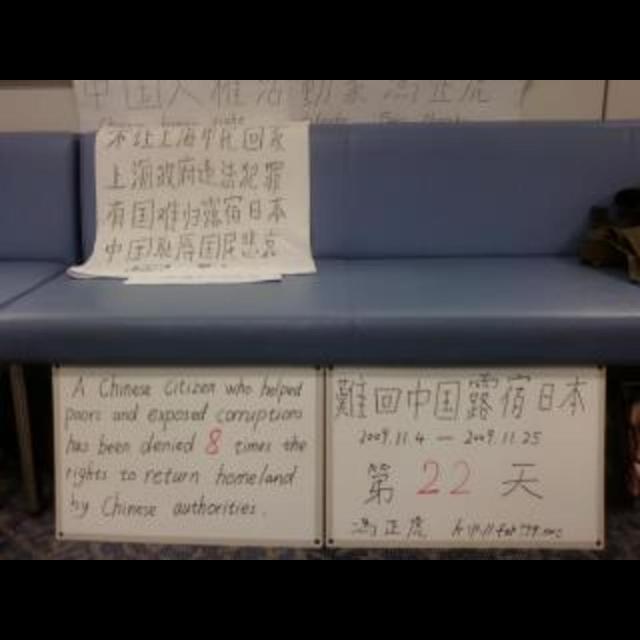 中国人権活動家馮正虎
不让上海市民回家
上海政府违法犯罪
有国难归露宿日本
中国耻辱国民悲哀
A Chinese Citizen who helped
poors and exposed corruptions
has been denied 8 times the
rights to return homeland
by Chinese authorities.
難回中国露宿日本
2009.11.4 — 2009.11.25
第 22 天
馮正虎